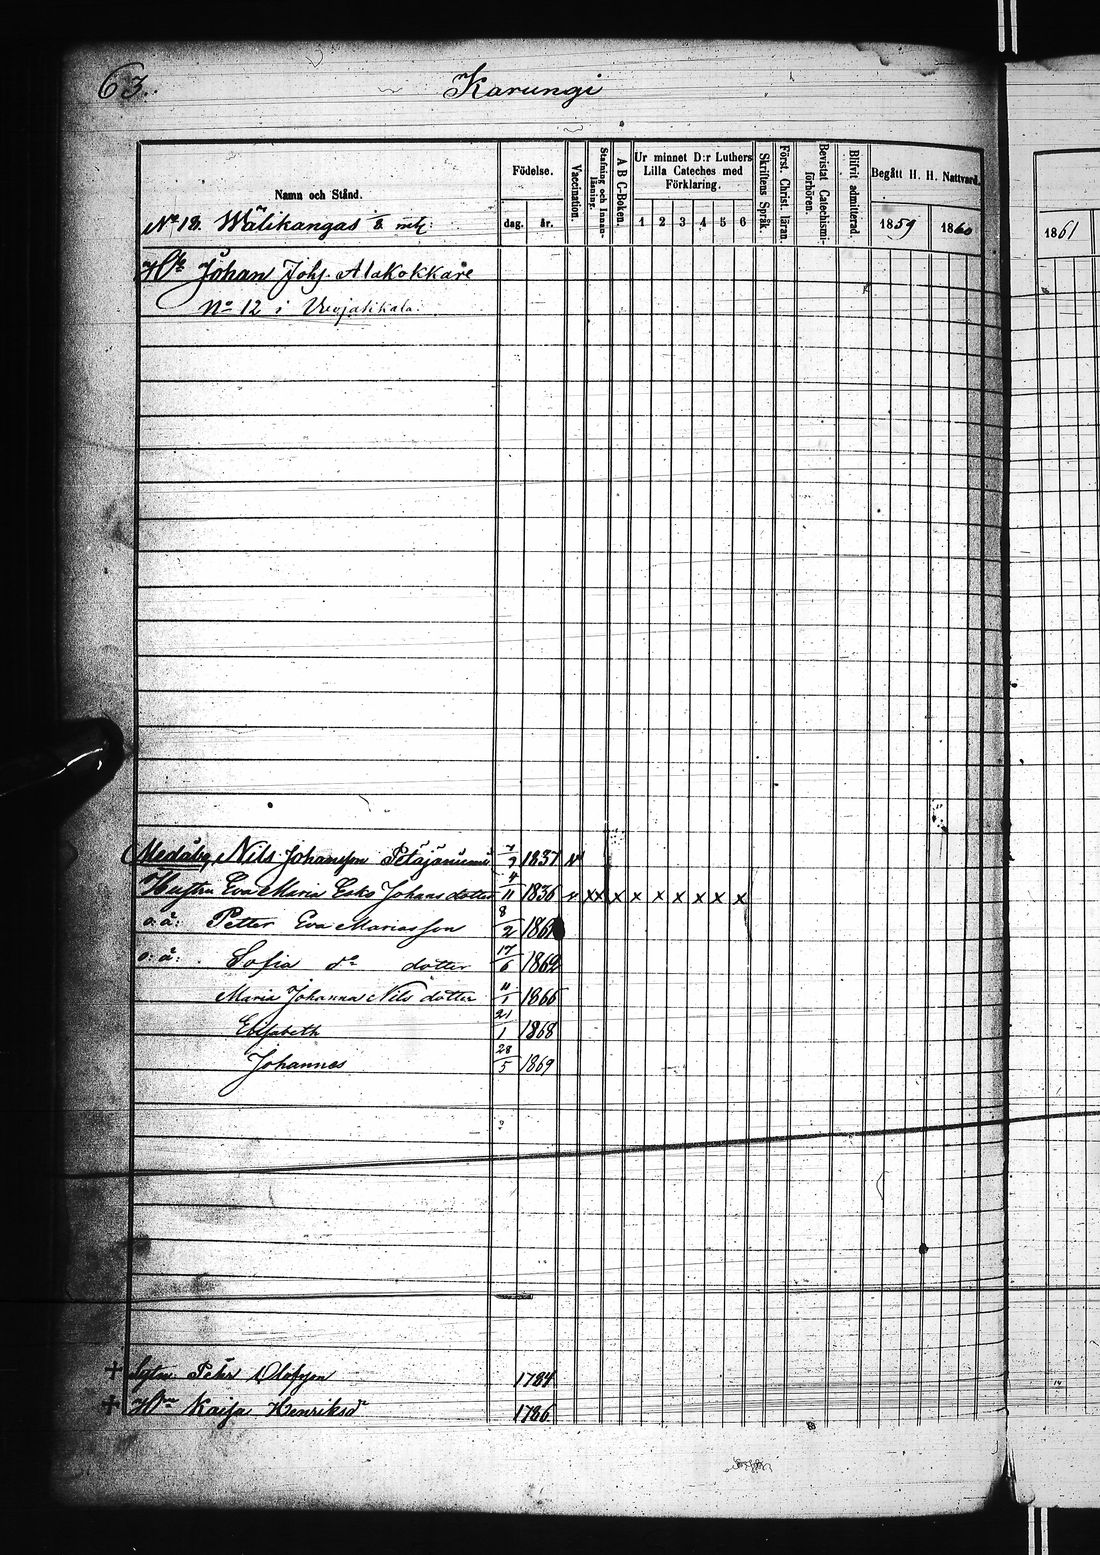 63.
Karungi
Namn och Stånd.
Födelse.
dag. år.
Vaccination.
Stafning och Innanläsning.
A B C-Boken.
Ur minnet D:r Luthers Lilla Cateches med Förklaring.
1 2 3 4 5 6
Skriftens Språk.
Först. Christ. läran.
Bevistat Catechismiförhören.
Blifvit admitterad.
Begått H. H. Nattvard.
1859 1860
1861
No 18. Wälikangas
Johan Johs. Alakokkare
No 12 i
Nils Johansson Petäjäniemi 1837 v
Hustru Eva Maria Esko Johans dotter 4/11 1836 v x x x x x x x x x
o.ä: Petter Eva Mariasson 8/2 186
o: ä: Sofia do dotter 17/6 1862
Maria Johanna Nils dotter 11/1 1866
Elisabeth 21/1 1868
Johannes 28/5 1869
+ Pehr Olofsson 1784
+ Hu Kaisa Henriksdr 1786